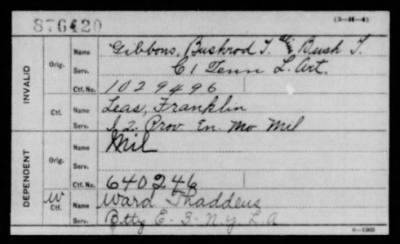 876420
(3-H-4)
INVALID
Orig.
Name Gibbons, Bushrod T. alias Bush T.
Serv. C 1 Tenn L. Art.
Ctf. No. 1029496
Ctf.
Name Leas, Franklin
Serv. I 2. Prov. En. Mo Mil
DEPENDENT
Orig.
Name Mil
Serv.
Ctf. No. 640246
W Ctf.
Name Ward Thaddeus
Serv. Btty E-3-N.Y. L A